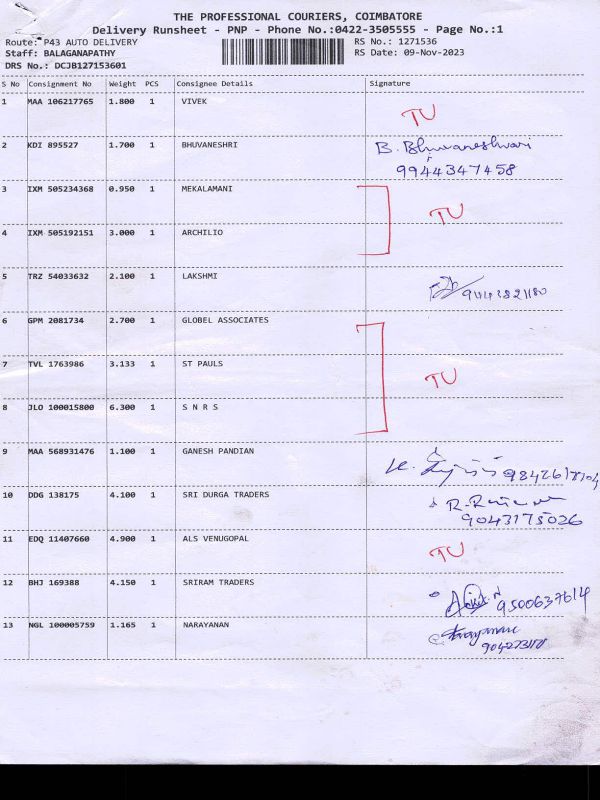 THE PROFESSIONAL COURIERS, COIMBATORE
Delivery Runsheet - PNP - Phone No.:0422-3505555 - Page No.:1
Route: P43 AUTO DELIVERY RS No.: 1271536
Staff: BALAGANAPATHY RS Date: 09-Nov-2023
DRS No.: DCJB127153601
S No Consignment No Weight PCS Consignee Details Signature
1 MAA 106217765 1.800 1 VIVEK TU
2 KDI 895527 1.700 1 BHUVANESHRI B. Bhuvaneshwari
9944347458
3 IXM 505234368 0.950 1 MEKALAMANI TU
4 IXM 505192151 3.000 1 ARCHILIO
5 TRZ 54033632 2.100 1 LAKSHMI
6 GPM 2081734 2.700 1 GLOBEL ASSOCIATES
7 TVL 1763986 3.133 1 ST PAULS TU
8 JLO 100015800 6.300 1 S N R S
9 MAA 568931476 1.100 1 GANESH PANDIAN
10 DDG 138175 4.100 1 SRI DURGA TRADERS
9043175026
11 EDQ 11407660 4.900 1 ALS VENUGOPAL TU
12 BHJ 169388 4.150 1 SRIRAM TRADERS 9500637614
13 NGL 100005759 1.165 1 NARAYANAN